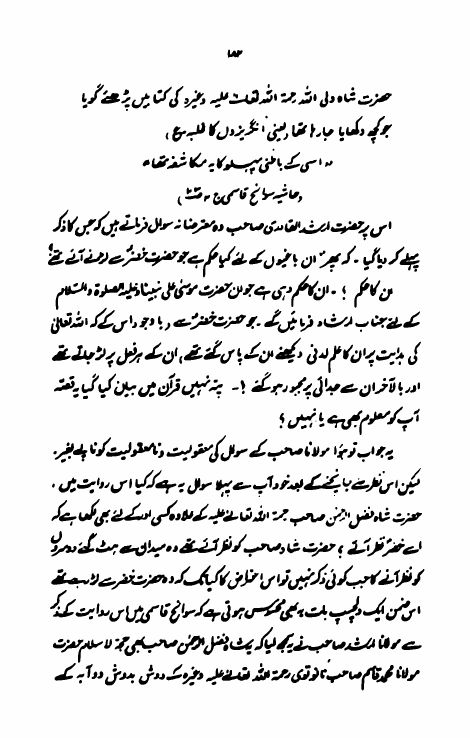 ۱۸۳
حضرت شاہ ولی اللہ رحمۃ اللہ تعالیٰ علیہ وغیرہ کی کتابیں پڑھئے گویا
جو کچھ دکھایا جا رہا تھا (یعنی انگریزوں کا غلبہ
" اسی کے باطنی پہلو کا یہ مکاشفہ تھا "
(حاشیہ سوانح قاسمی ج
اس پر حضرت ارشد القادری صاحب وہ معترضانہ سوال فرماتے ہیں کہ جس کا ذکر
پہلے کر دیا گیا ۔ کہ پھر ان باغیوں کے لئے کیا حکم ہے جو حضرت خضرؑ سے لڑنے آئے تھے؟
ان کا حکم ؟ ۔ ان کا حکم وہی ہے جو ان حضرت موسیٰ علی نبینا وعلیہ الصلوۃ والسلام
کے لئے جناب ارشاد فرمائیں گے ۔ جو حضرت خضرؑ سے (باوجود اس کے کہ اللہ تعالیٰ
کی ہدایت پر ان کا علم لدنی دیکھنے ان کے پاس گئے تھے) ان کے ہر فعل پر لڑ جاتے تھے
اور بالآخر ان سے جدائی پر مجبور ہو گئے ؟ ۔ پتہ نہیں قرآن میں بیان کیا گیا یہ قصہ
آپ کو معلوم بھی ہے یا نہیں ؟
یہ جواب تو ہوا مولانا صاحب کے سوال کی معقولیت و نامعقولیت کو ناپے بغیر ۔
لیکن اس نظر سے جانچنے کے بعد خود آپ سے پہلا سوال یہ ہے کہ کیا اس روایت میں ،
حضرت شاہ فضل الرحمٰن صاحب رحمۃ اللہ تعالیٰ علیہ کے علاوہ کسی اور کے لئے بھی لکھا ہے کہ
اسے خضرؑ نظر آئے ؟ حضرت شاہ صاحب کو نظر آئے تھے وہ میدان سے ہٹ گئے دوسروں
کو نظر آنے کا جب کوئی ذکر نہیں تو اس اعتراض کا کیا تک کہ وہ حضرت خضر سے لڑ رہے تھے
اس ضمن ایک دلچسپ بات یہ بھی محسوس ہوتی ہے کہ سوانح قاسمی میں اس روایت کے ذکر
سے مولانا ارشد صاحب نے یہ سمجھ لیا کہ فضل الرحمٰن صاحب بھی حجۃ الاسلام حضرت
مولانا محمد قاسم صاحب نانوتوی رحمۃ اللہ تعالیٰ علیہ وغیرہ کے دوش بدوش دوآبہ کے